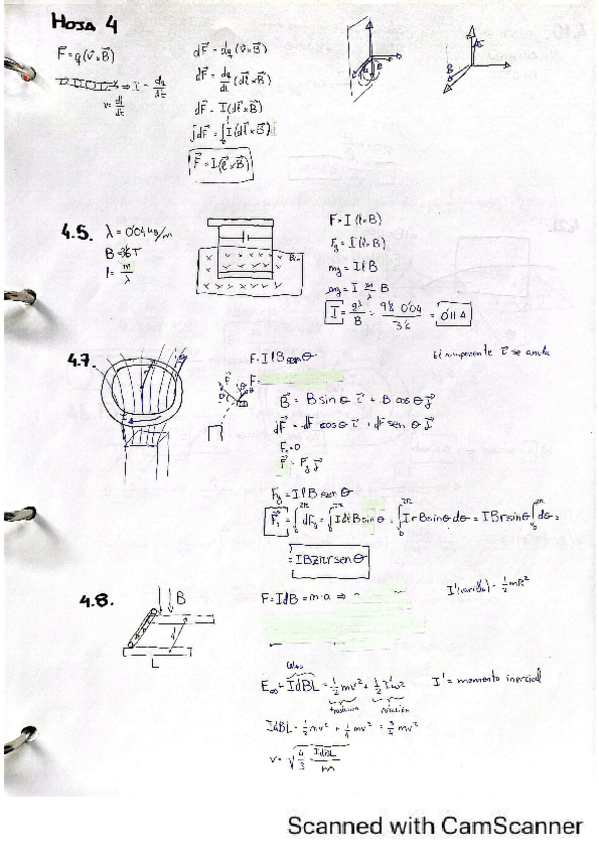 HOJA 4
F⃗ = q(v⃗×B⃗)
⇒ I = dq/dt
v = dl/dt
dF⃗ = dq (v⃗×B⃗)
dF⃗ = dq/dt (dl⃗×B⃗)
dF⃗ = I(dl⃗×B⃗)
∫dF⃗ = ∫ I(dl⃗×B⃗)
F⃗ = I(l⃗×B⃗)
4.5. λ = 0'04 kg/m
B = 3'6 T
l = m/λ
F = I (l×B)
Fg = I(l×B)
mg = I l B
mg = I m/λ B
I = gλ/B = 9'8 0'04/3'6 = 0'11 A
4.7.
F = I l B sen θ
F =
B⃗ = B sin θ i⃗ + B cos θ j⃗
dF⃗ = dF cos θ i⃗ + dF sen θ j⃗
F⃗ = Fy j⃗
Fy = I l B sen θ
= ∫₀²π dFy = ∫₀²π I dl B sin θ = ∫₀²π I r B sin θ dθ = I B r sin θ ∫₀²π dθ =
= I B 2πr sen θ
4.8.
B
L
F = I d B = m·a ⇒
I'(varilla) = 1/2 mR²
IdBL = 1/2 mv² + 1/2 I'ω²
I' = momento inercial
rotación
IdBL = 1/2 mv² + 1/4 mv² = 3/4 mv²
v = √(4/3 IdBL/m)
Scanned with CamScanner